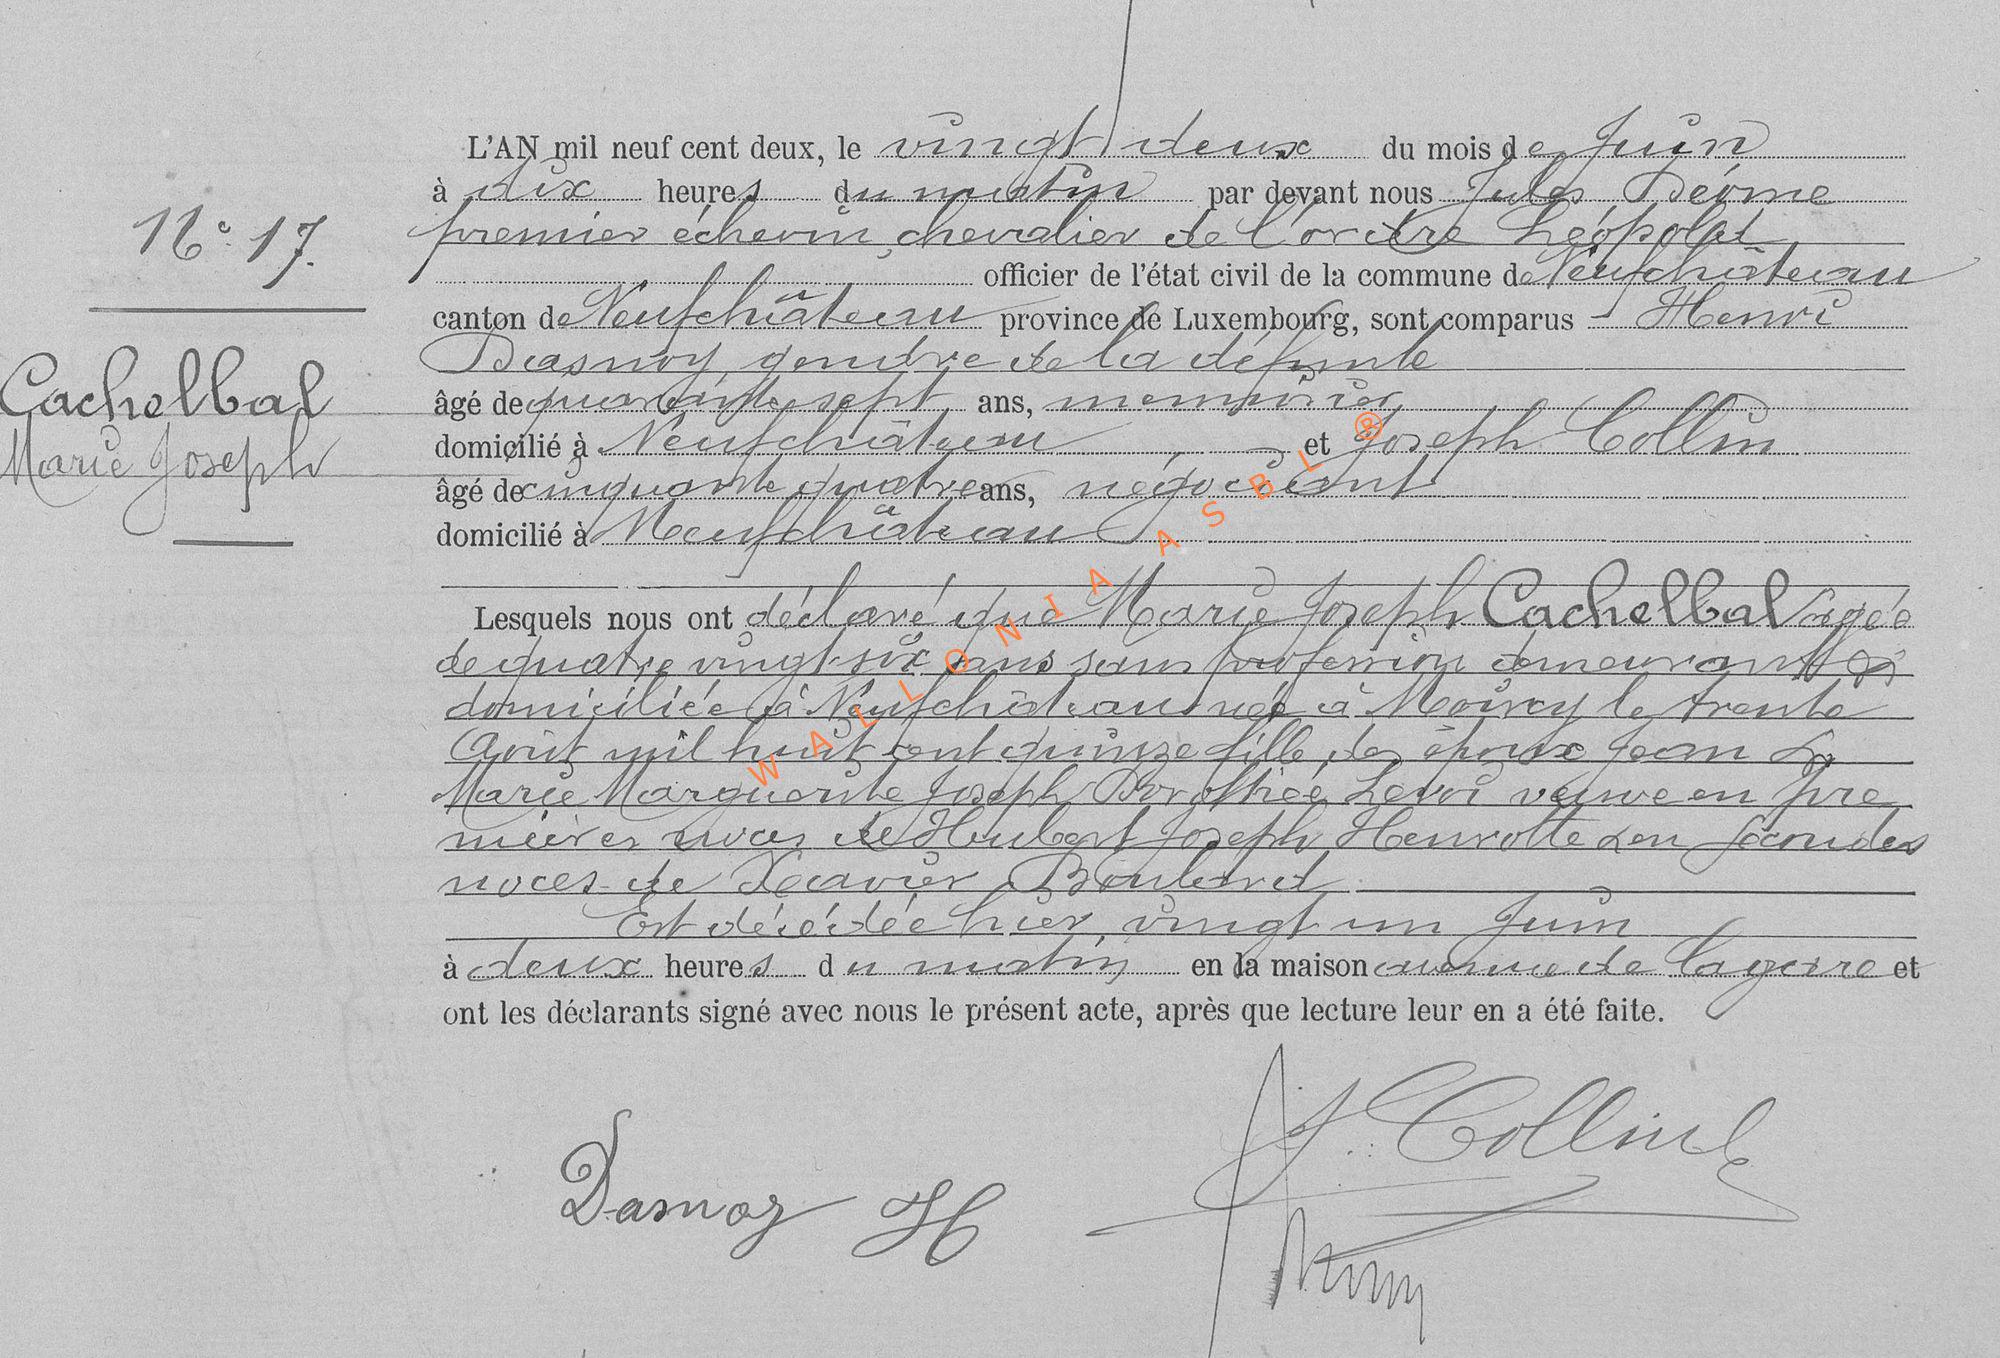 N° 17.
Cachelbal
Marie Joseph
L'AN mil neuf cent deux, le vingt deux du mois de Juin
à dix heures du matin par devant nous Jules Dérome
premier échevin, chevalier de l'ordre Léopold
officier de l'état civil de la commune de Neufchâteau
canton de Neufchâteau province de Luxembourg, sont comparus Henri
Dasnoy, gendre de la défunte
âgé de quarante sept ans, menuisier
domicilié à Neufchâteau et Joseph Collin
âgé de cinquante quatre ans, négociant
domicilié à Neufchâteau
Lesquels nous ont déclaré que Marie Joseph Cachelbal âgée
de quatre vingt-six ans sans profession demeurant &
domiciliée à Neufchâteau née à Moircy le trente
Août mil huit cent quinze fille des époux Jean &
Marie Marguerite Joseph Dorothée veuve en pre
mières noces de Hubert Joseph Henrotte & en secondes
noces de Xcavier
Est décédée hier, vingt un Juin
à deux heures du matin en la maison avenue de la gare et
ont les déclarants signé avec nous le présent acte, après que lecture leur en a été faite.
Dasnoy H
J. Collin
WALLONIA ASBL ®